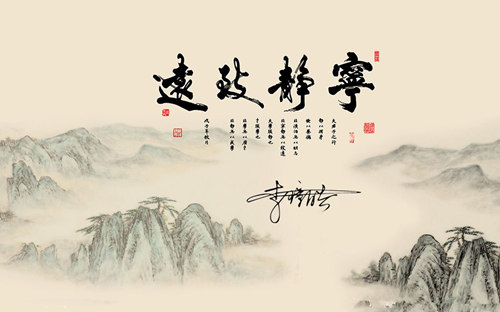 寧靜致遠
夫君子之行
靜以修身
儉以養德
非澹泊無以明志
非寧靜無以致遠
夫學須靜也
才須學也
非學無以廣才
非志無以成學
戊子年秋月